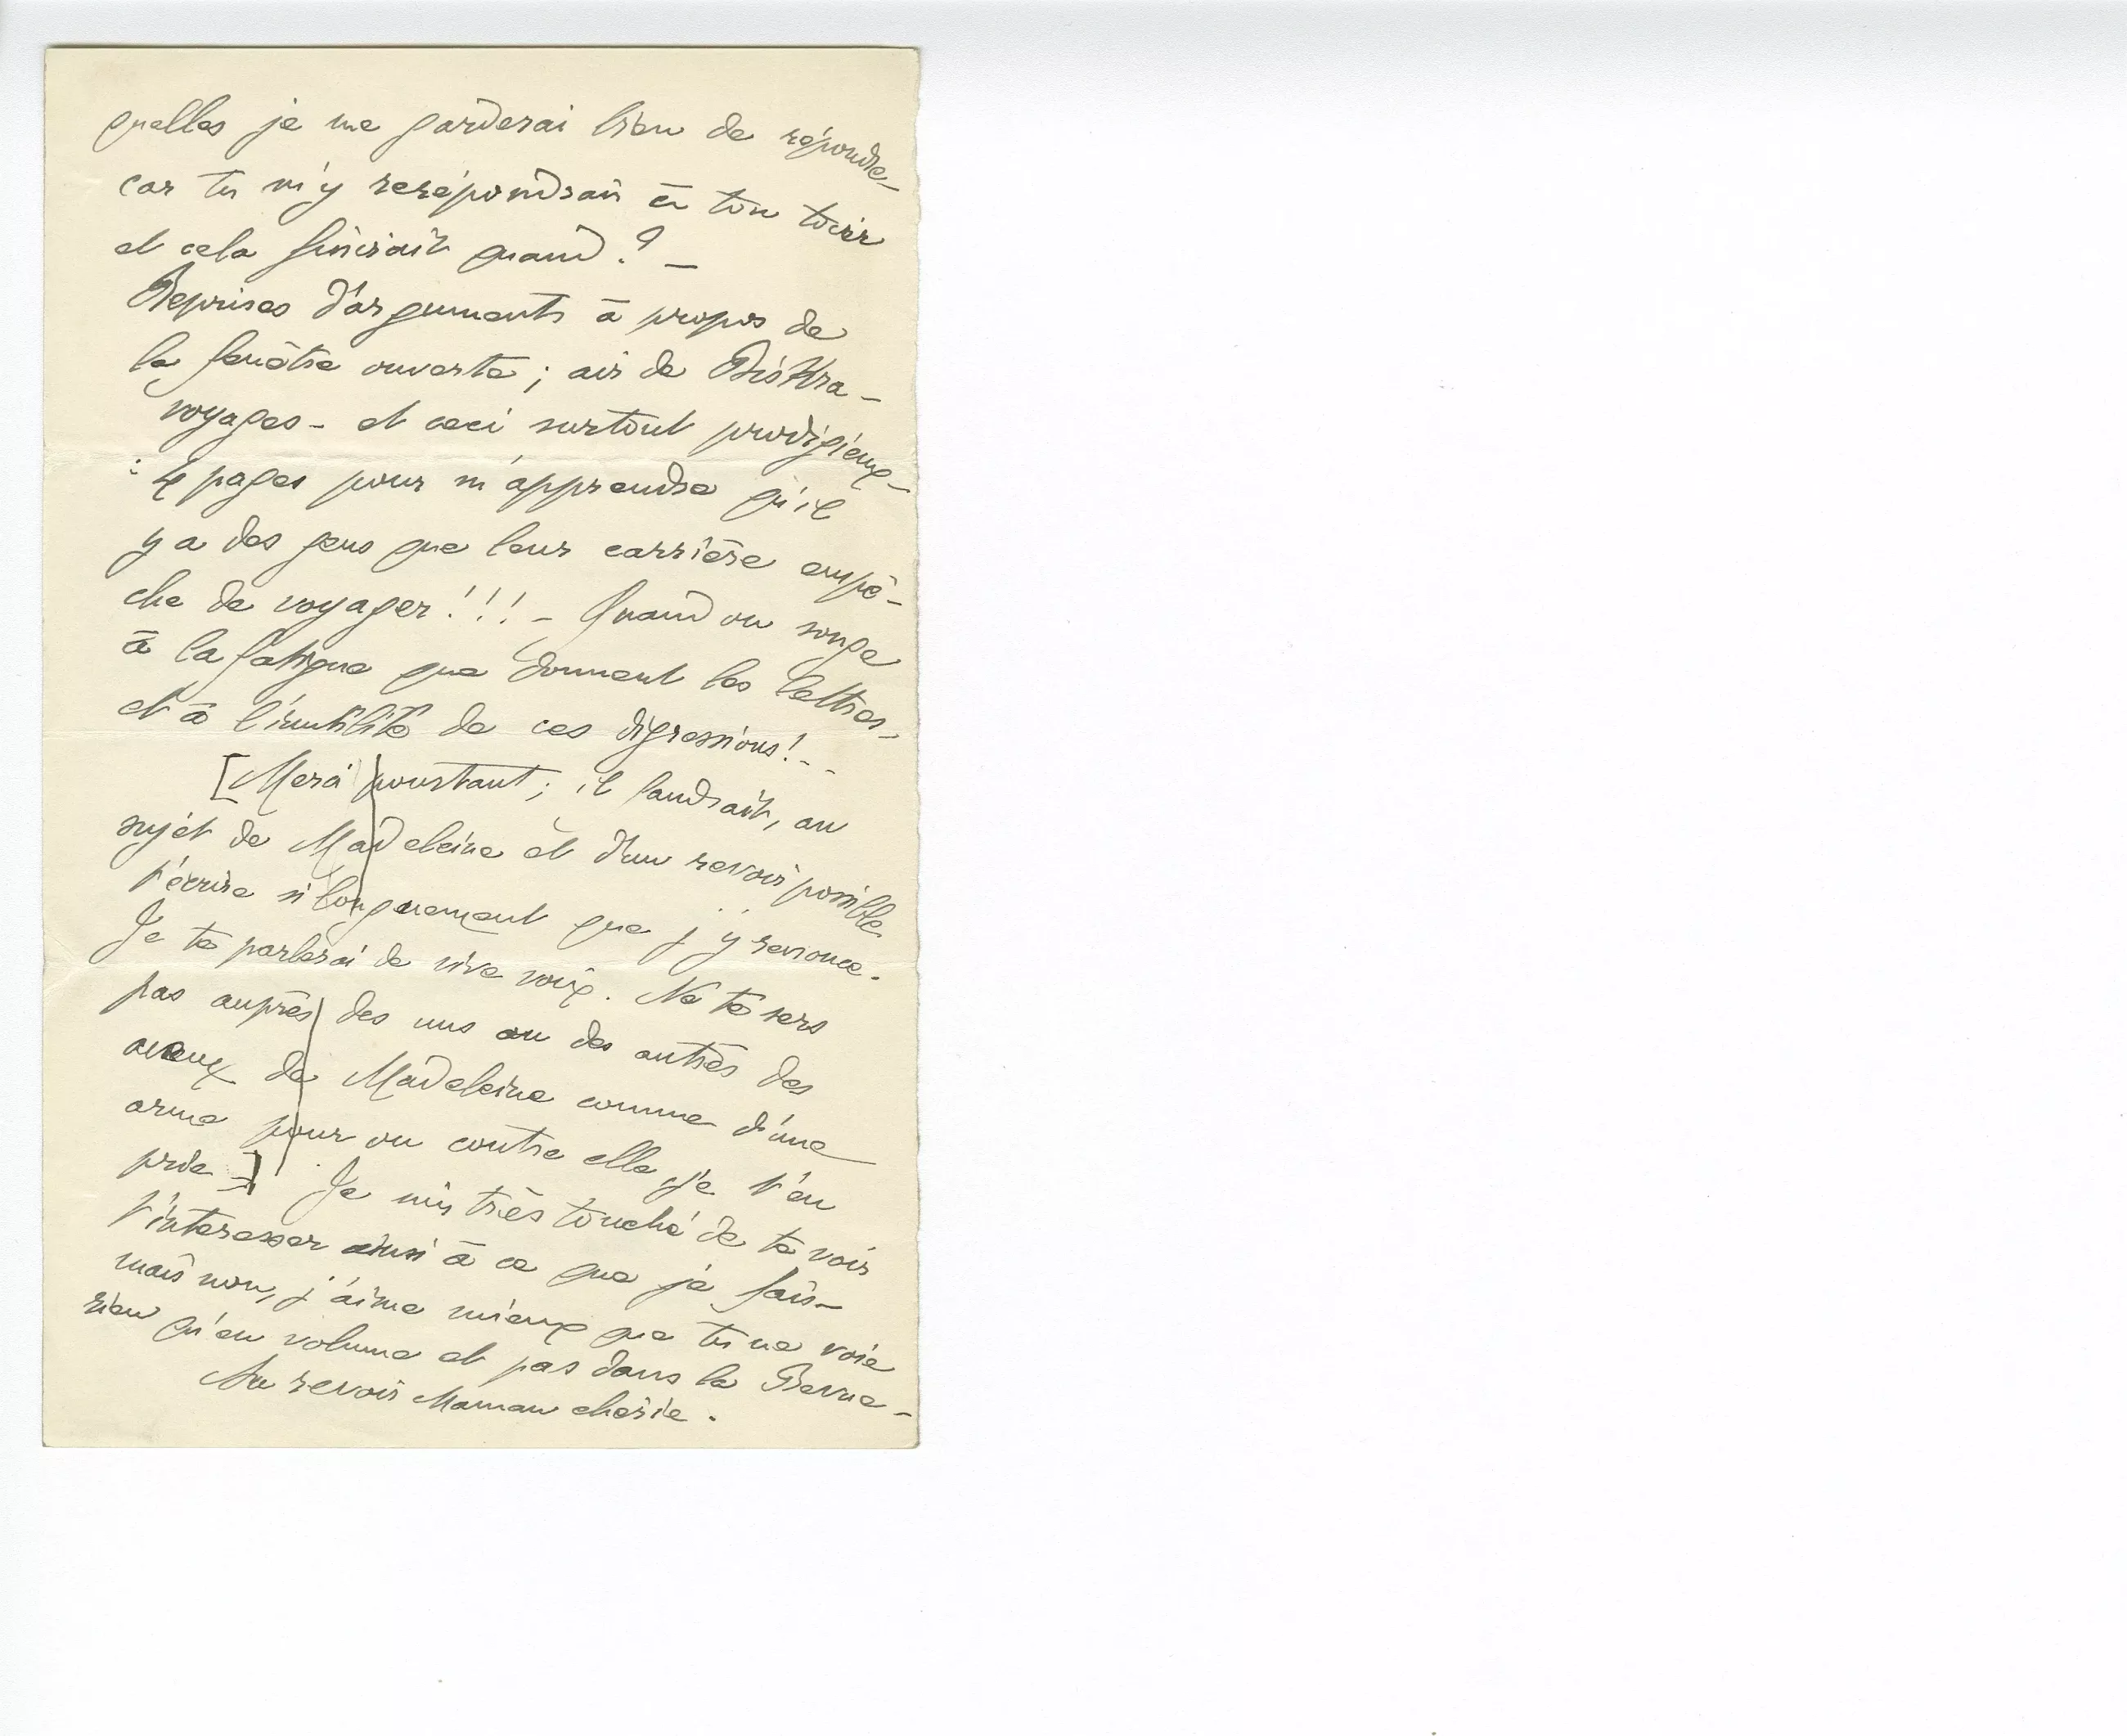 quelles je me garderai bien de répondre –
car tu m'y rerépondrais à ton tour
et cela finirait quand ? –
Reprises d'arguments à propos de
la fenêtre ouverte ; air de Biskra –
voyages – et ceci surtout prodigieux –
: 4 pages pour m'apprendre qu'il
y a des gens que leur carrière empê-
che de voyager !!! – Quand on songe
à la fatigue que donnent les lettres –
et à l'inutilité de ces digressions ! – –
[Merci pourtant ; il faudrait, au
sujet de Madeleine et d'un revoir possible
t'écrire si longuement que j'y renonce.
Je te parlerai de vive voix. Ne te sers
pas auprès des uns ou des autres des
aveux de Madeleine comme d'une
arme pour ou contre elle je t'en
prie –] Je suis très touché de te voir
t'interesser ainsi à ce que je fais –
mais non, j'aime mieux que tu ne voie
rien qu'en volume et pas dans la Revue –
Au revoir Maman chérie.